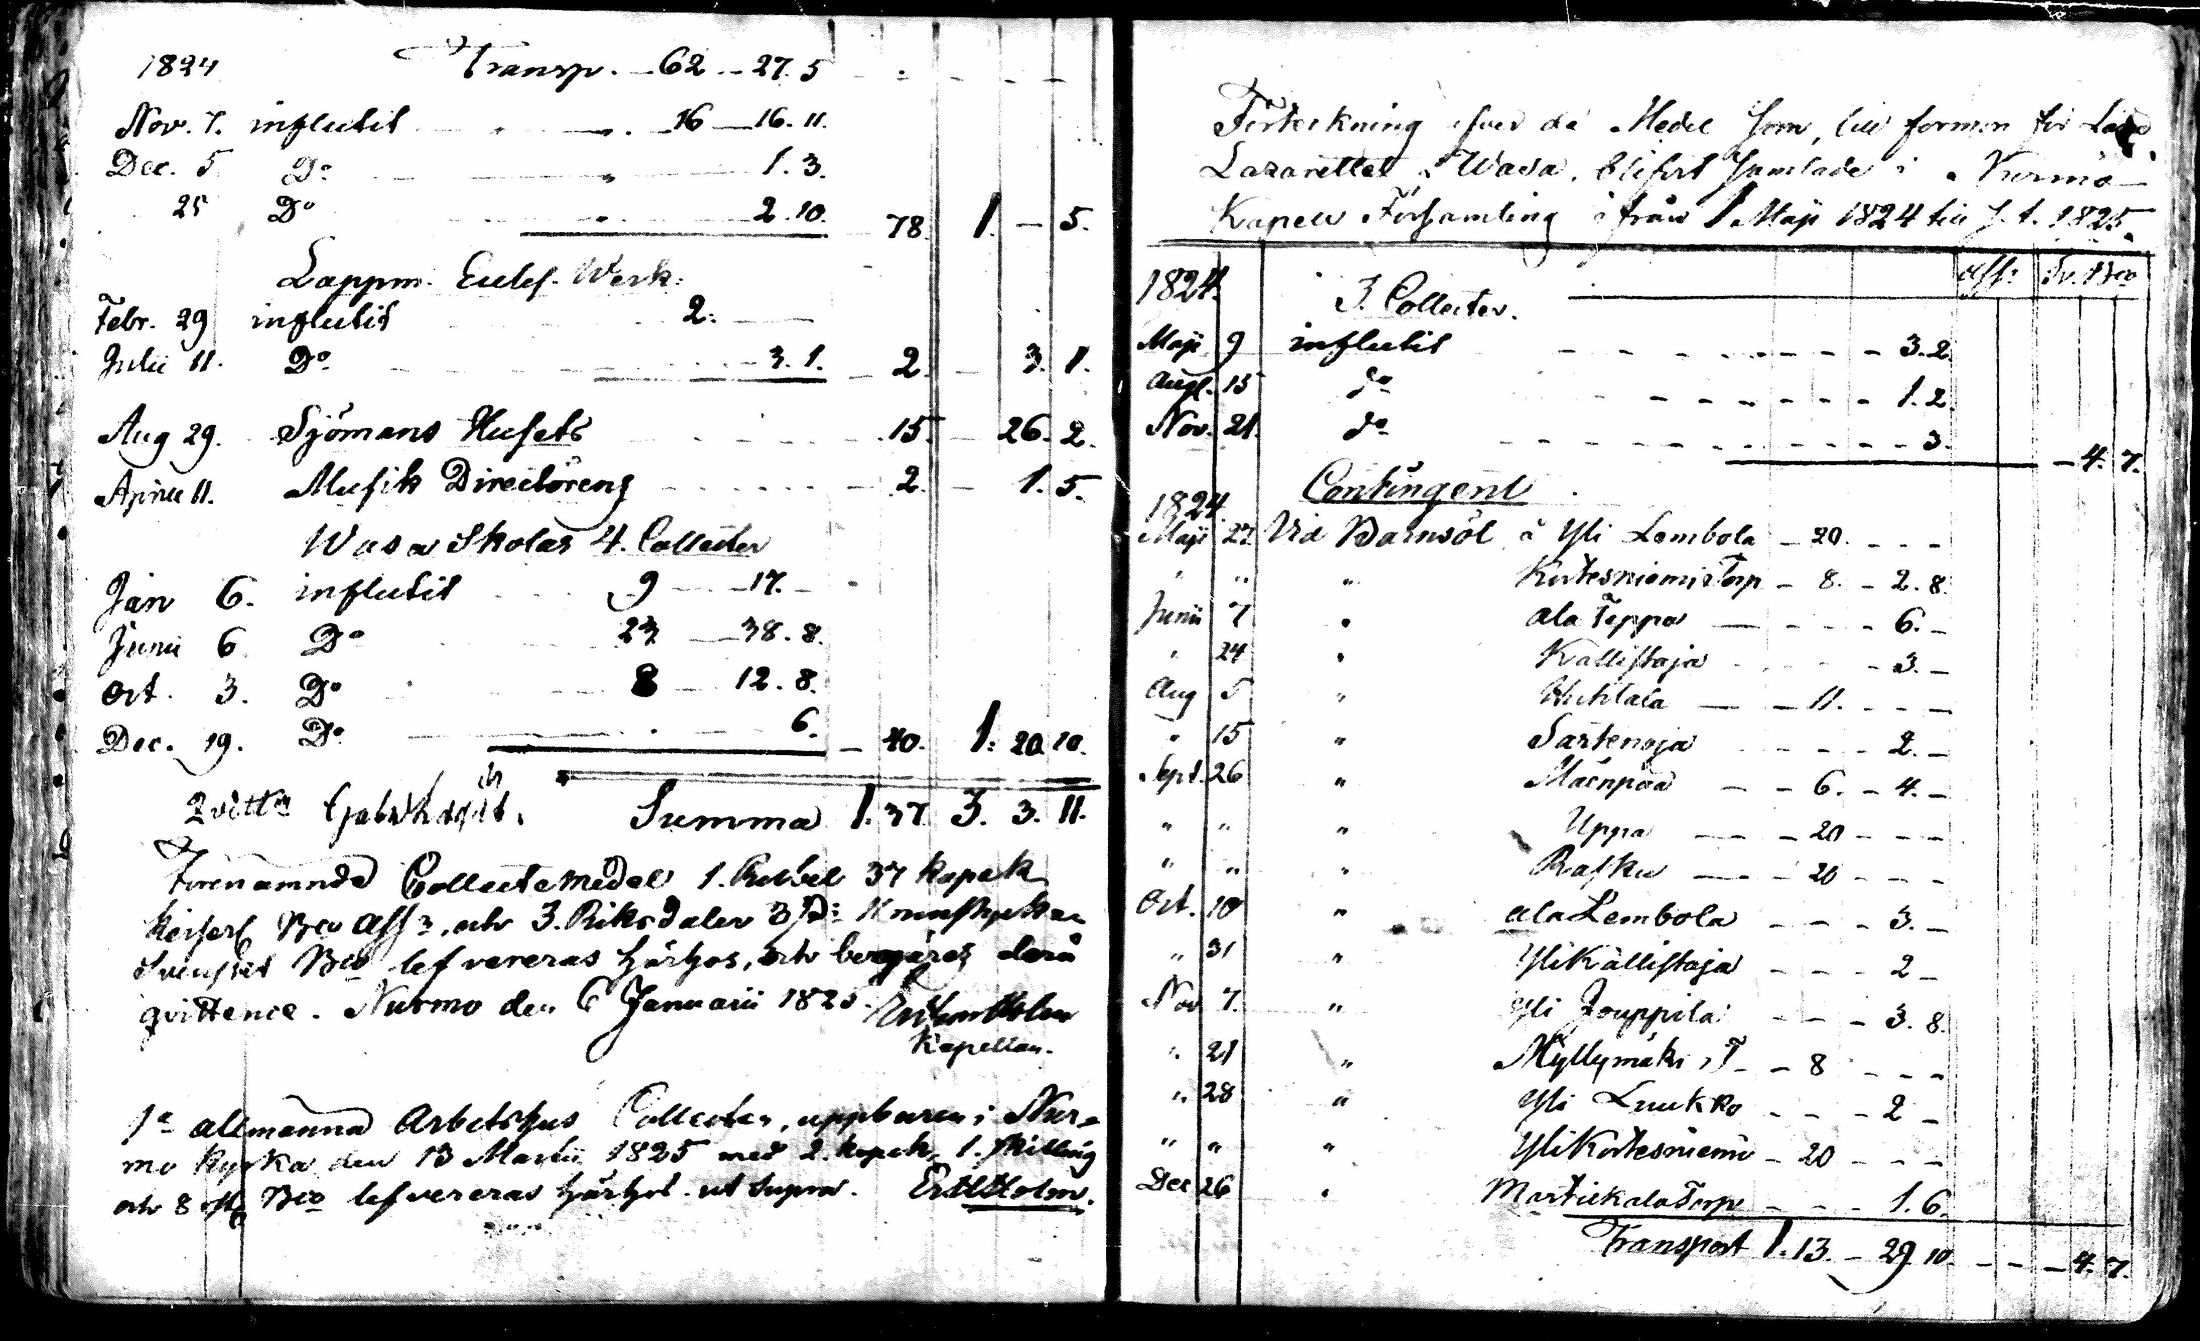 1824 Transp. 62 27. 5
Nov. 7. influtit 16 16. 11.
Dec. 5 Do 1. 3.
25 Do 2. 10. 78. 1. 5.
Lappm. Werk:
Febr. 29 influtit 2:
Julii 11. Do 3. 1. 2. 3. 1.
Aug 29. Sjömans Husets 15. 26. 2.
Aprill 11. Musik Directörens 2. 1. 5.
Wasa Skolas 4. Collecter
Jan 6. influtit 9 17.
Junii 6 Do 23 38. 8.
Oct. 3. Do 8 12. 8.
Dec. 19. Do 6. 40. 1: 20 10.
Summa 1. 37. 3. 3. 11.
Förenämnde Collectemedel 1. Rubel 37 kopek
Bco Ass:, och 3. Riksdaler 3
Bco lefvereras härhos, och begäres derå
qvittence. Nurmo den 6 Januarii 1825.
Kapellan.
1a allmänna Arbetshus Collecten, uppburen i Nur-
mo kyrka den 13 Martii 1825 med 2. kopek, 1. skilling
och 8 Bco lefvereras härhos. ut supra. Holm.
Förteckning öfver de Medel som, till förmon för
Lazarettet i Wasa, blifvit samlade i Nurmo
Kapell Församling ifrån 1 Maji 1824 till s. t. 1825.
1824. Ass: Sv. Bco
3. Collecter.
Maji 9 influtit 3. 2.
Aug. 15 do 1. 2.
Nov. 21. do 3. 4. 7.
Contingent
1824
Maji 27. Vid Barnsöl å Yli Lembola 20.
" " " Kortesniemi Torp 8. 2. 8.
Junii 7 " ala Teppo 6.
" 24 " Kallistaja 3.
Aug 5 " Huhtala 11.
" 15 " Sartenoja 2.
Sept. 26 " Mäenpää 6. 4.
" " " Uppa 20
" " " Rasku 20
Oct. 10 " ala Lembola 3.
" 31 " Yli Källistaja 2
Nov 7. " Yli Jouppila 3. 8.
" 21 " Myllymäki, T 8
" 28 " Yli Luukko 2
" " " Yli Kortesniemi 20
Dec 26 " Martickala Torp 1. 6.
Transport 1. 13. 29. 10. 4. 7.